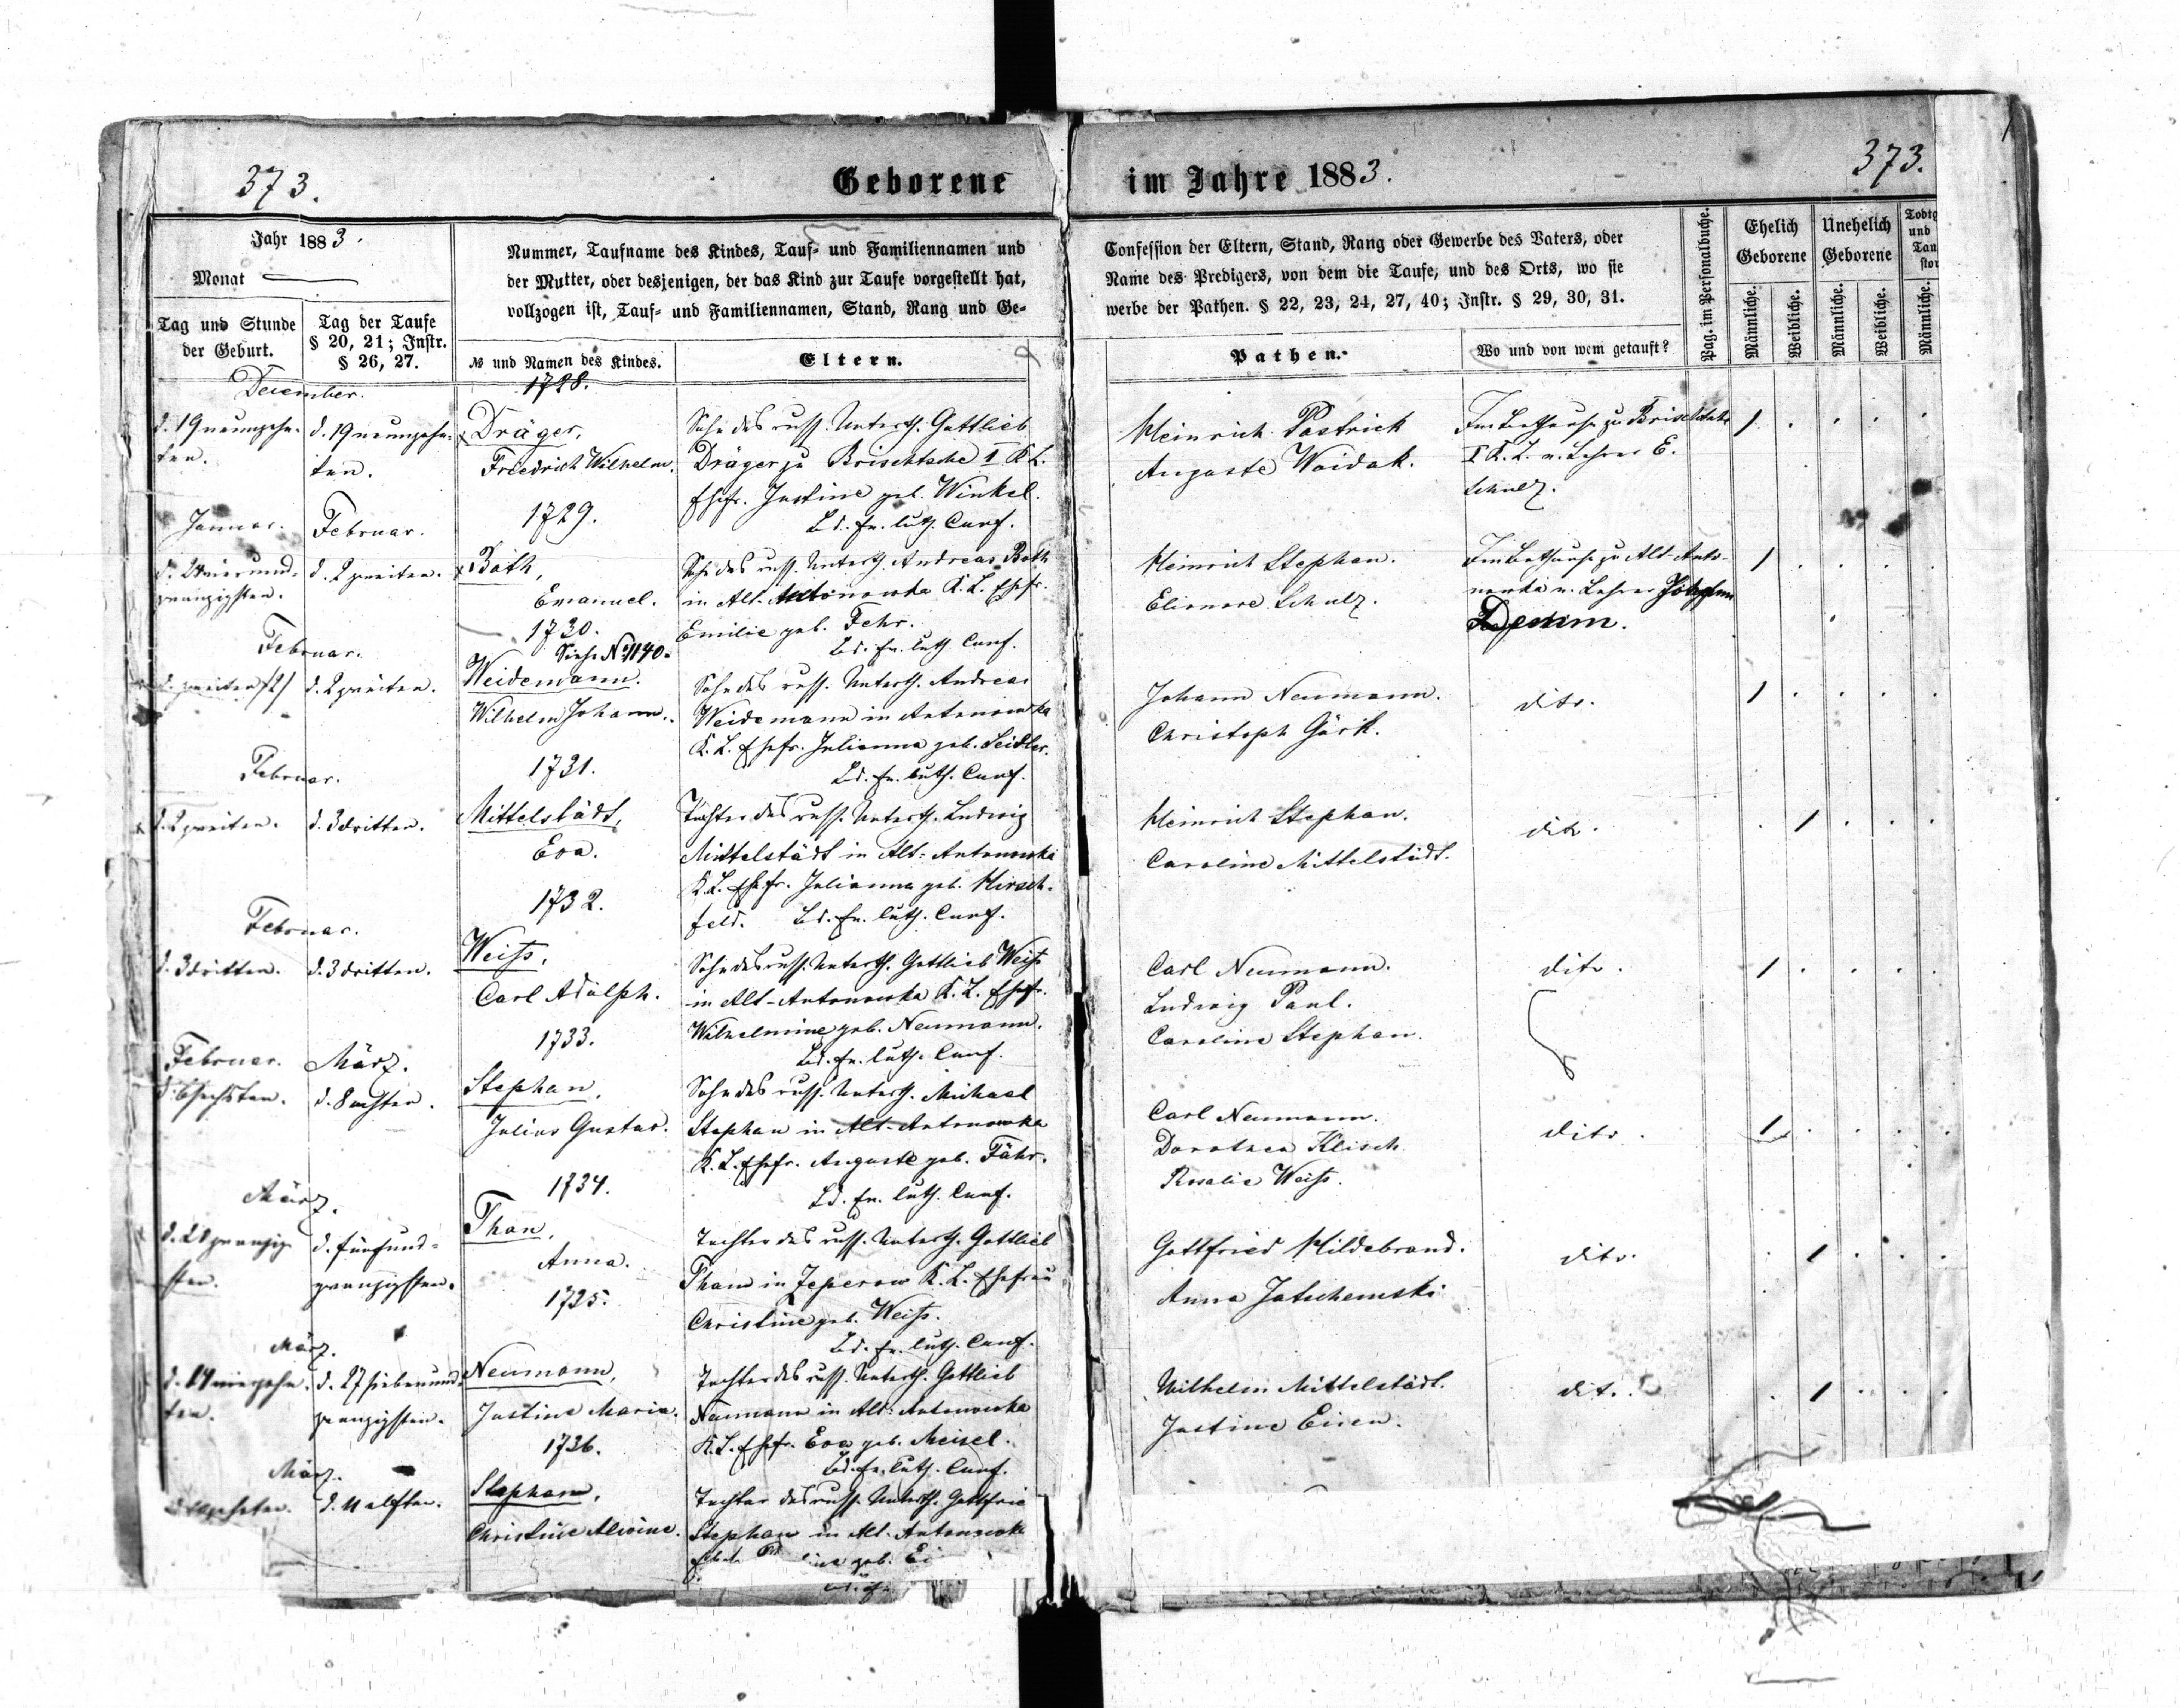 373.
Geborene im Jahre 1883.
373.
Jahr 1883.
Monat
Tag und Stunde der Geburt.
Tag der Taufe § 20, 21; Instr. § 26, 27.
Nummer, Taufname des Kindes, Tauf- und Familiennamen und
der Mutter, oder desjenigen, der das Kind zur Taufe vorgestellt hat,
vollzogen ist, Tauf- und Familiennamen, Stand, Rang und Ge-
№ und Namen des Kindes.
Eltern.
Confession der Eltern, Stand, Rang oder Gewerbe des Vaters, oder
Name des Predigers, von dem die Taufe, und des Orts, wo sie
werbe der Pathen. § 22, 23, 24, 27, 40; Instr. § 29, 30, 31.
Pathen.
Wo und von wem getauft?
Pag. im Personalbuche.
Ehelich Geborene
Unehelich Geborene
Männliche.
Weibliche.
Männliche.
Weibliche.
Männliche.
December.
d. 19 neunzehn-
ten.
d. 19 neunzehn-
ten.
1728.
Dräger,
Friedrich Wilhelm.
Sohn des russ. Unterth. Gottlieb
Dräger zu Brischtsche I K.L.
Ehefr. Justine geb. Winkel.
Bd. ev. luth. Conf.
Heinrich Postrick
Auguste Woidak.
Im Bethause zu
I K.L. v. Lehrer E.
Schulz.
Januar.
Februar.
d. 24 vierund-
zwanzigsten.
d. 2 zweiten.
1729.
Both,
Emanuel.
Sohn des russ. Unterth. Andreas Both
in Alt-Antonowka K.L. Ehefr.
Emilie geb. Fehr.
Bd. ev. luth. Conf.
Heinrich Stephan.
Elionore Schulz.
Im Bethause zu Alt-Anto-
nowka v. Lehrer
Februar.
d. zweiten /2/
d. 2 zweiten.
1730.
Siehe № 1140.
Weidemann.
Wilhelm Johann.
Sohn des russ. Unterth. Andreas
Weidemann in Antonowka
K.L. Ehefr. Julianna geb. Seidler.
Bd. ev. luth. Conf.
Johann Neumann.
Christoph Görk.
dito.
Februar.
d. 2 zweiten.
d. 3 dritten.
1731.
Mittelstädt,
Eva.
Tochter des russ. Unterth. Ludwig
Mittelstädt in Alt-Antonowka
K.L. Ehefr. Julianna geb. Hirsch-
feld. Bd. ev. luth. Conf.
Heinrich Stephan.
Caroline Mittelstädt.
dito.
Februar.
d. 3 dritten.
d. 3 dritten.
1732.
Weiß,
Carl Adolph.
Sohn des russ. Unterth. Gottlieb Weiß
in Alt-Antonowka K.L. Ehefr.
Wilhelmine geb. Neumann.
Bd. ev. luth. Conf.
Carl Neumann.
Ludwig Paul.
Caroline Stephan.
dito.
Februar.
März.
d. 6 sechsten.
d. 8 achten.
1733.
Stephan,
Julius Gustav.
Sohn des russ. Unterth. Michael
Stephan in Alt-Antonowka
K.L. Ehefr. Auguste geb. Fähr.
Bd. ev. luth. Conf.
Carl Neumann.
Dorothea Klisch
Rosalie Weiß.
dito.
März.
zwanzig-
sten.
d. fünfund-
zwanzigsten.
1734.
Than,
Anna.
Tochter des russ. Unterth. Gottlieb
Than in Zeperow K.L. Ehefrau
Christine geb. Weiß.
Bd. ev. luth. Conf.
Gottfried Hildebrand.
Anna Jatschemski
dito.
März.
d. 14 vierzehn-
ten.
d. 27 siebenund-
zwanzigsten.
1735.
Neumann,
Justine Maria.
Tochter des russ. Unterth. Gottlieb
Neumann in Alt-Antonowka
K.L. Ehefr. Eva geb. Meisel.
Bd. ev. luth. Conf.
Wilhelm Mittelstädt.
Justine Eisen.
dito.
März.
d. 11 elften.
1736.
Stephan,
Christine Alwine.
Tochter des russ. Unterth. Gottfrie
Stephan in Alt-Antonowk
geb. Ei